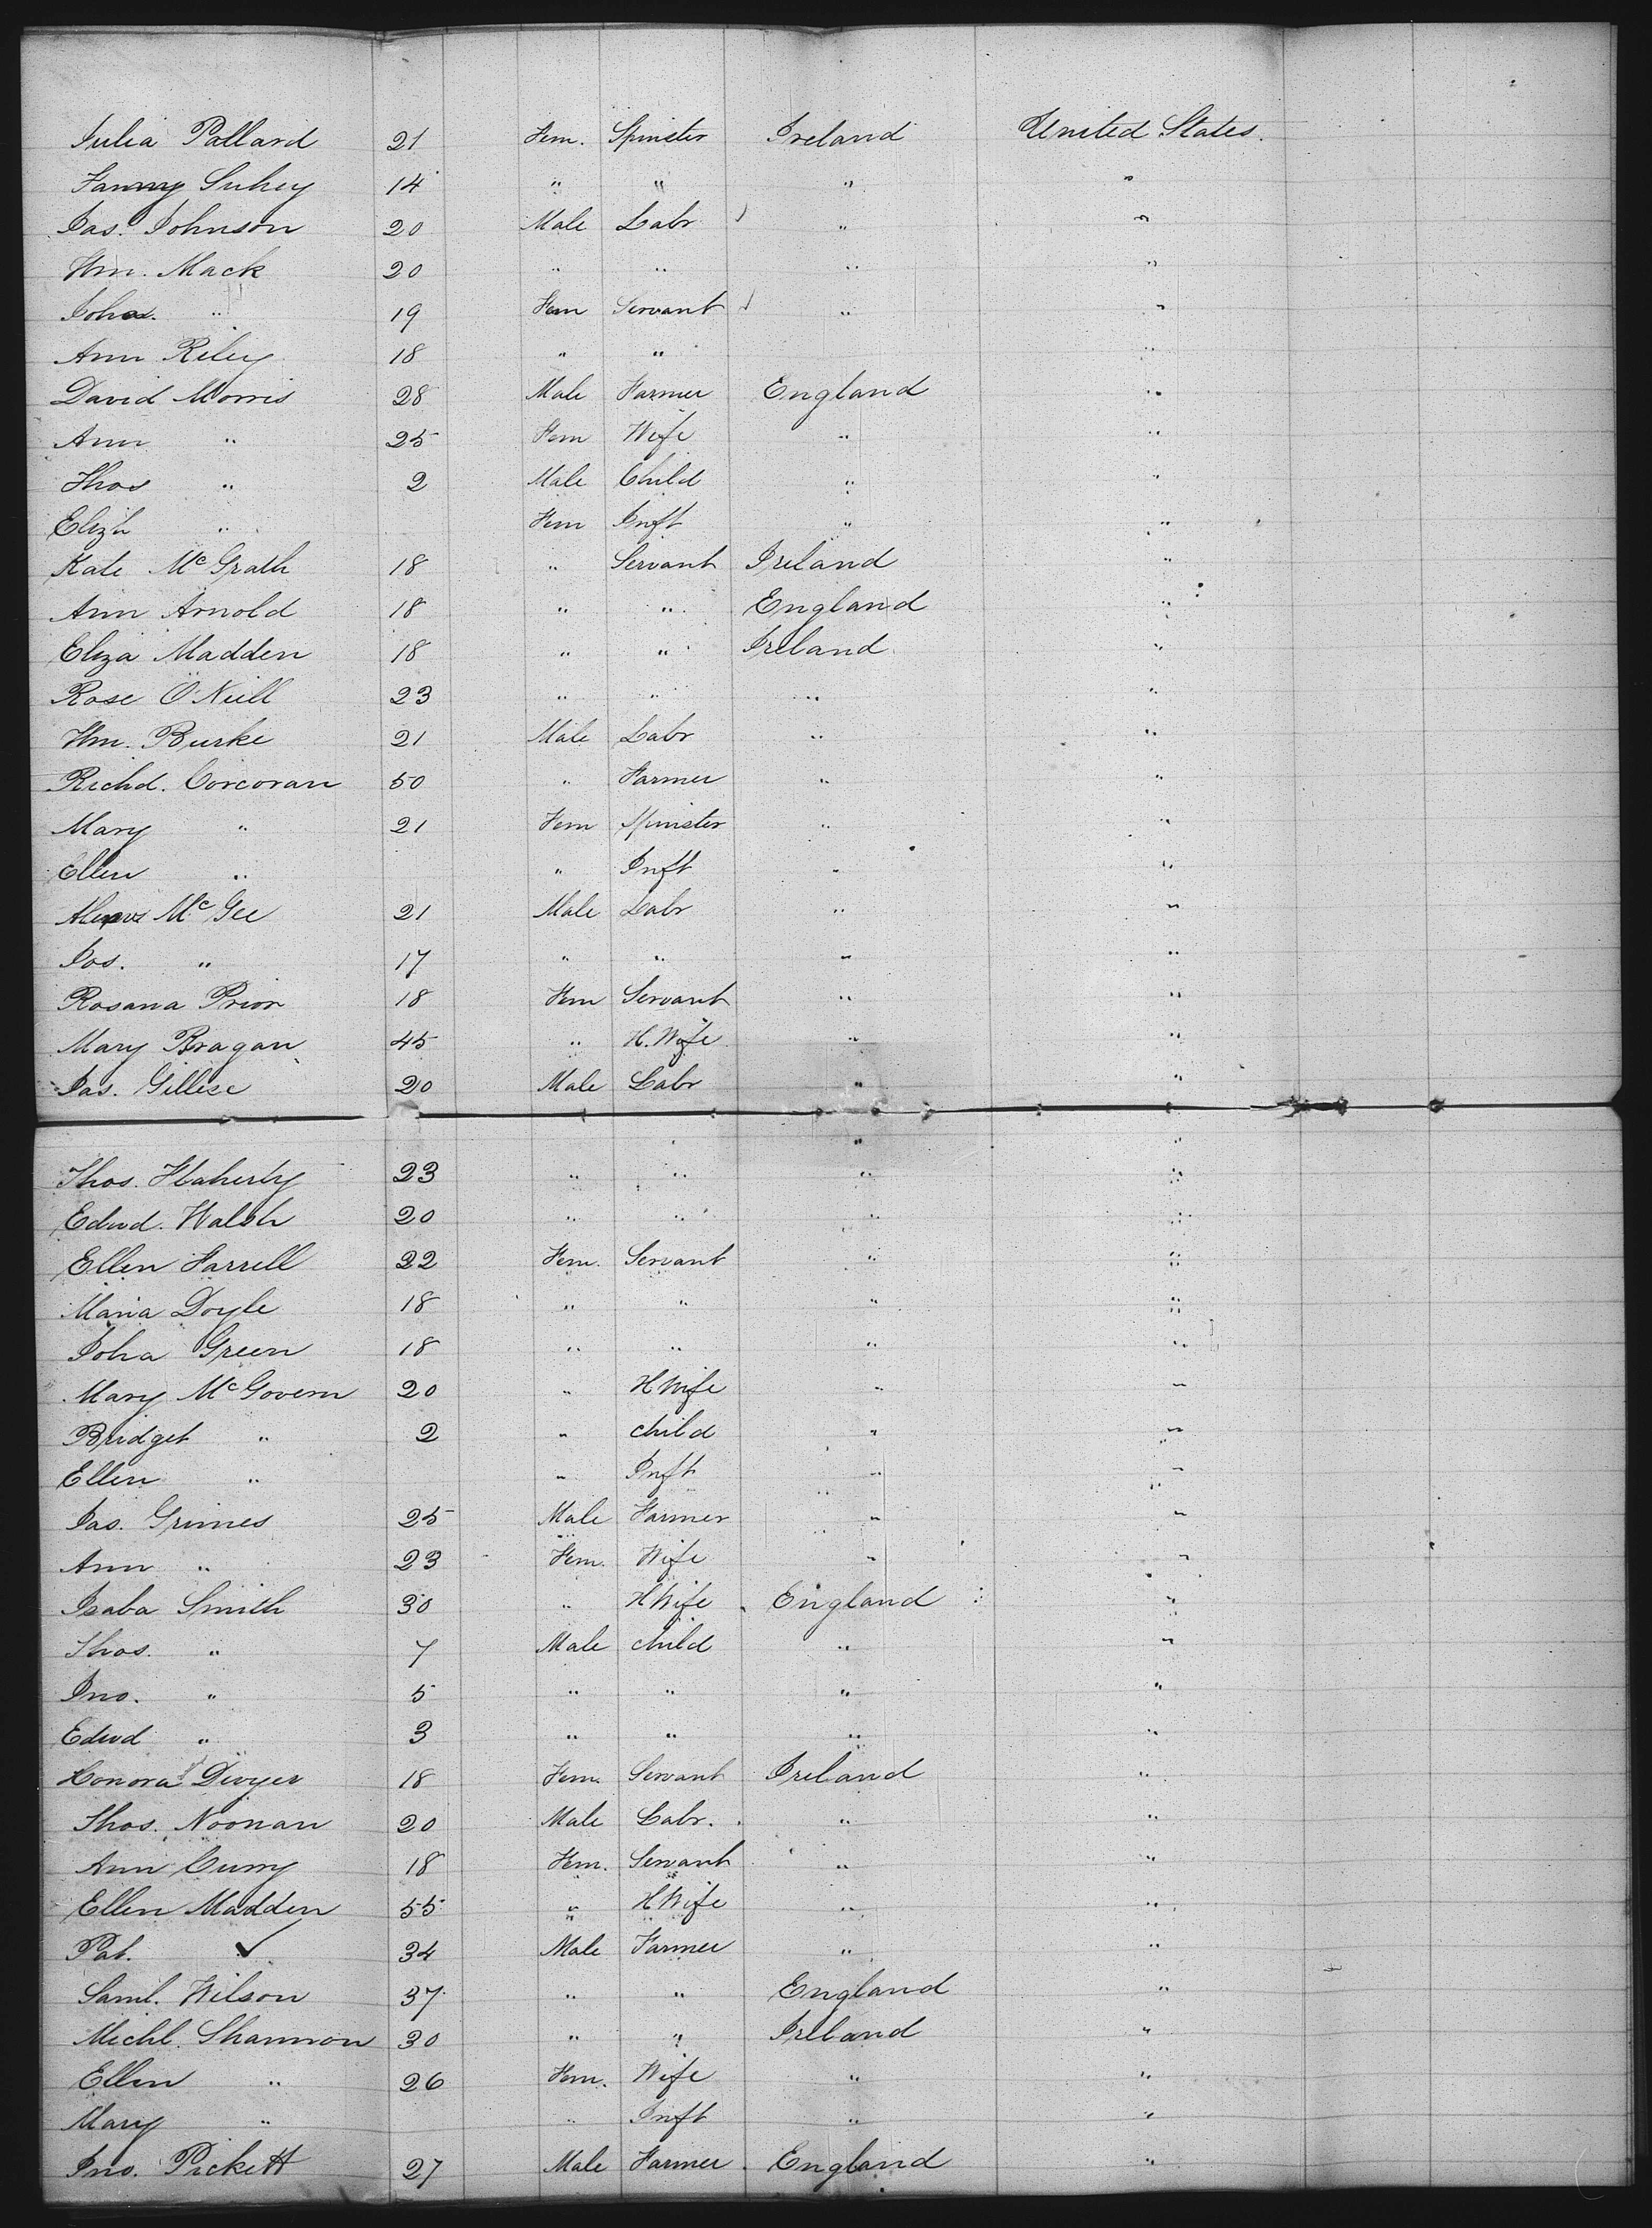 Julia Pollard 21 Fem. Spinster Ireland United States.
Fanny Suhey 14 " " " "
Jas. Johnson 20 Male Labr " "
Wm. Mack 20 " " " "
Joha. " 19 Fem Servant " "
Ann Riley 18 " " "
David Morris 28 Male Farmer England "
Ann " 25 Fem Wife " "
Thos " 2 Male Child " "
Elizh " Fem Inft " "
Kate McGrath 18 " Servant Ireland "
Ann Arnold 18 " " England "
Eliza Madden 18 " " Ireland "
Rose O'Neill 23 " " " "
Wm. Burke 21 Male Labr " "
Richd. Corcoran 50 " Farmer " "
Mary " 21 Fem Spinster " "
Ellen " " Inft " "
McGee 21 Male Labr " "
Jos. " 17 " " " "
Rosana Prior 18 Fem Servant " "
Mary Bragan 45 " H. Wife " "
Jas. Gillese 20 Male Labr " "
" "
Thos. Flaherty 23 " " " "
Edwd. Walsh 20 " " " "
Ellen Farrell 22 Fem. Servant " "
Maria Doyle 18 " " " "
Joha Green 18 " " " "
Mary McGovern 20 " H Wife " "
Bridget " 2 " child " "
Ellen " " Inft " "
Jas. Grimes 25 Male Farmer " "
Ann " 23 Fem. Wife " "
Isaba Smith 30 " H Wife England "
Thos. " 7 Male child " "
Jno. " 5 " " " "
Edwd " 3 " " " "
Honora Dwyer 18 Fem. Servant Ireland "
Thos. Noonan 20 Male Labr. " "
Ann Curry 18 Fem. Servant " "
Ellen Madden 55 " H Wife " "
Pat. ✓ 34 Male Farmer " "
Saml. Wilson 37 " " England "
Michl. Shannon 30 " " Ireland "
Ellen " 26 Fem. Wife " "
Mary " " Inft " "
Jno. Pickett 27 Male Farmer England "